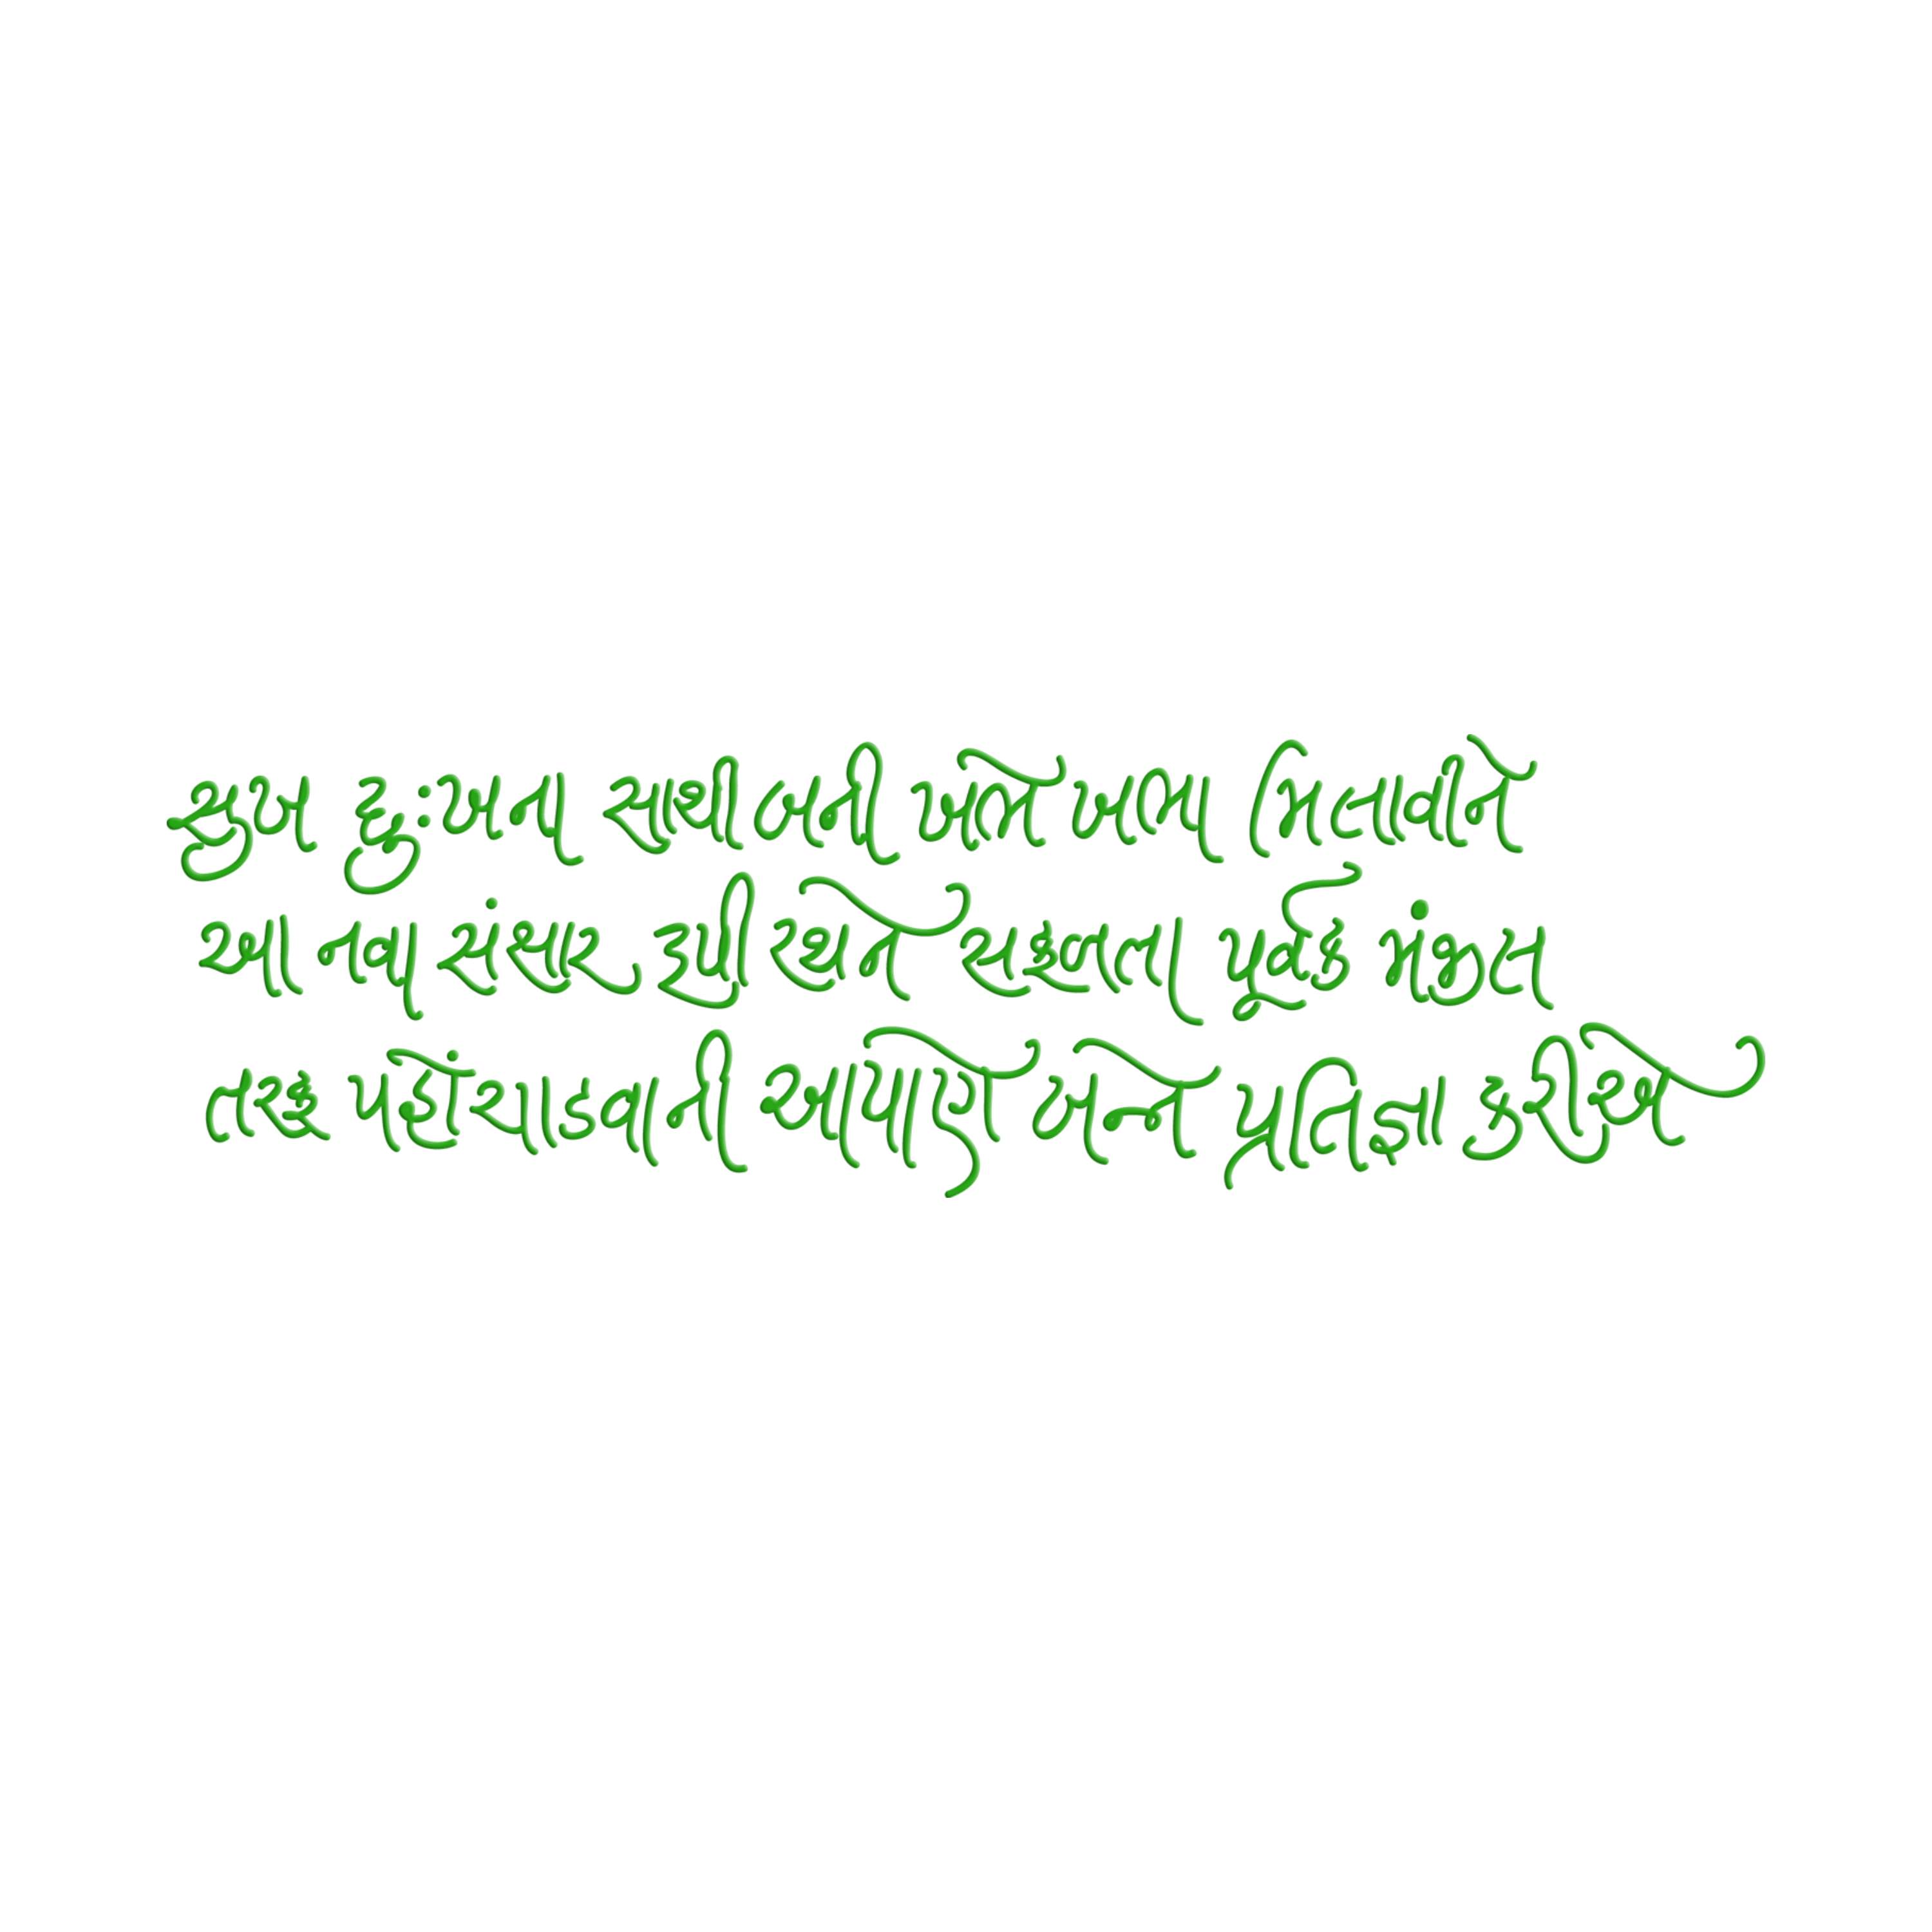 સુખ દુઃખના સાથી બની ખભે ખભા મિલાવીને
આ નવા સંસાર રથને સફળતા પૂર્વક મંજીલ
તરફ પહોંચાડવાની આપણે બન્ને પ્રતિજ્ઞા કરીએ